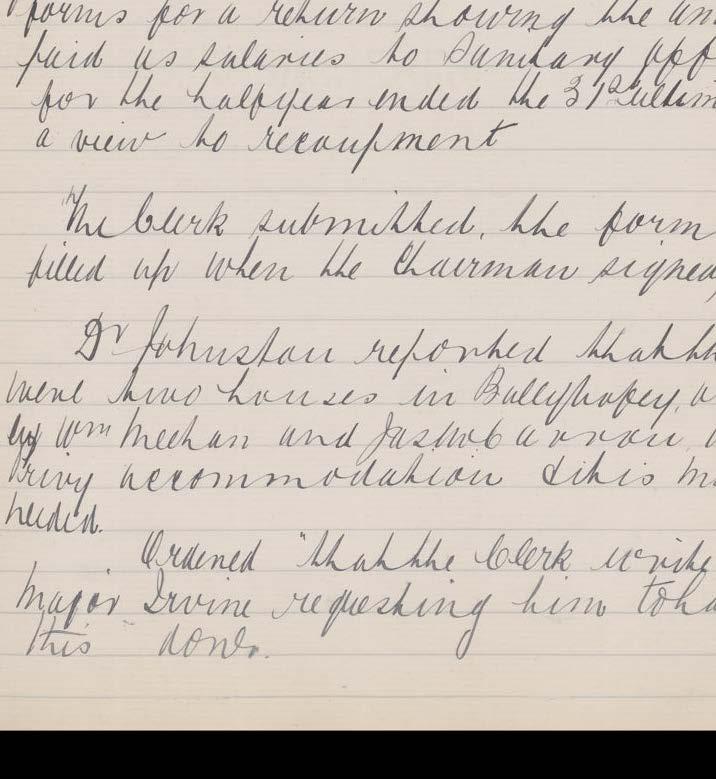 forms for a return showing the am
paid as salaries to Sanitary Off
for the half year ended the 31st ultim
a view to recoupment
The Clerk submitted, the form
filled up when the Chairman signed
Dr Johnston reported that th
were two houses in Ballyhofey, o
by Wm Meehan and Jas
Privy accommodation & this m
needed.
Ordered "that the Clerk write
Major Irvine requesting him to ha
this done.